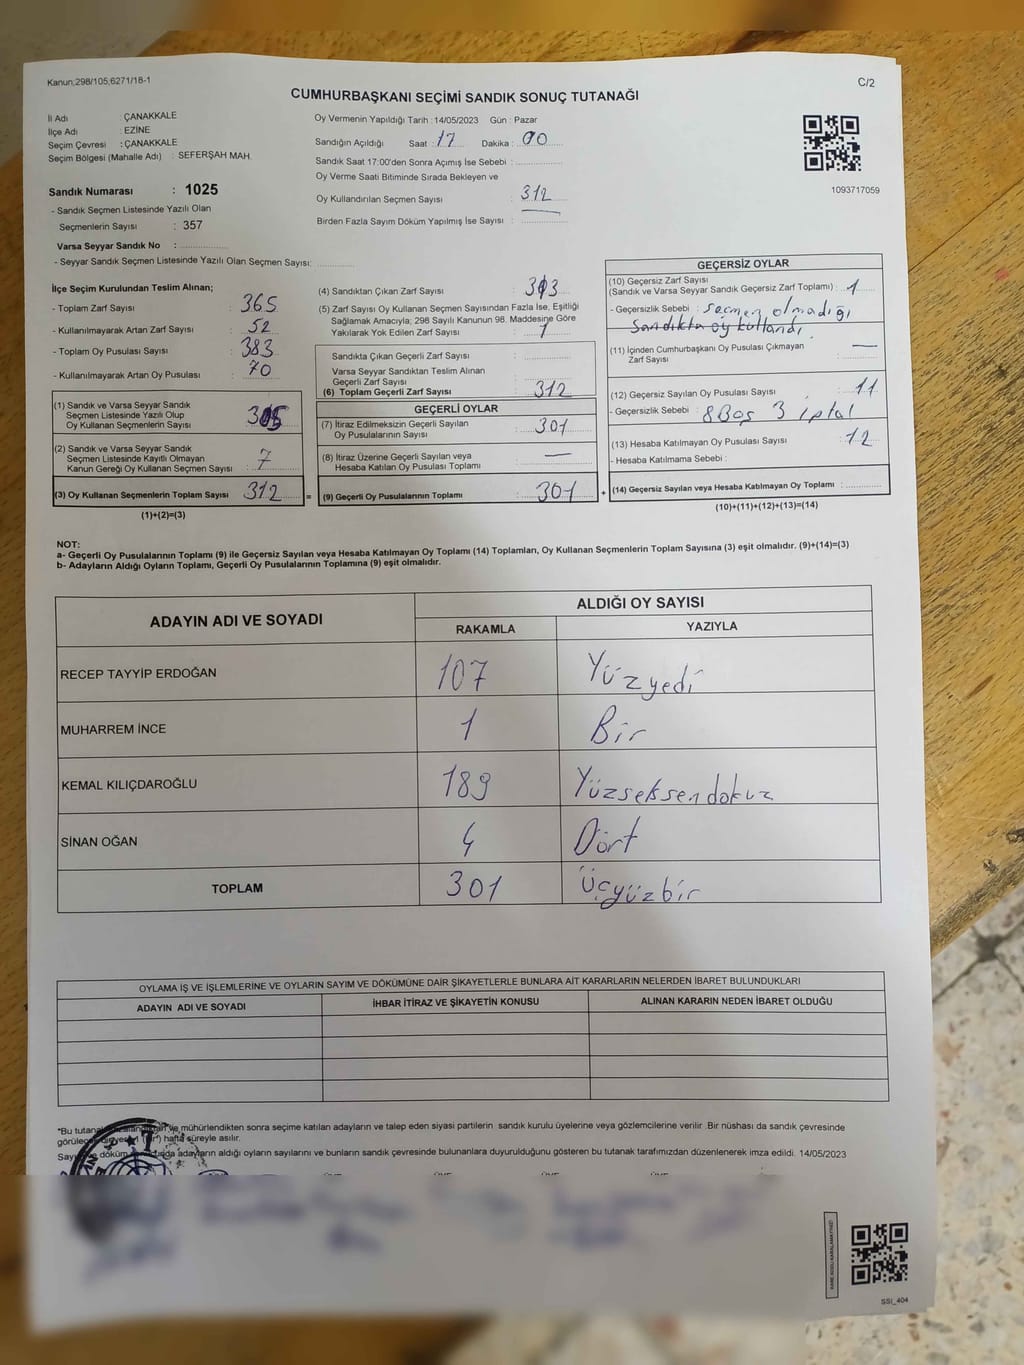 Kanun;298/105;6271/18-1
C/2
CUMHURBAŞKANI SEÇİMİ SANDIK SONUÇ TUTANAĞI
İl Adı : ÇANAKKALE
İlçe Adı : EZİNE
Seçim Çevresi : ÇANAKKALE
Seçim Bölgesi (Mahalle Adı) : SEFERŞAH MAH.
Sandık Numarası : 1025
- Sandık Seçmen Listesinde Yazılı Olan
Seçmenlerin Sayısı : 357
Varsa Seyyar Sandık No :
- Seyyar Sandık Seçmen Listesinde Yazılı Olan Seçmen Sayısı:
Oy Vermenin Yapıldığı Tarih : 14/05/2023 Gün : Pazar
Sandığın Açıldığı Saat : 17 Dakika : 00
Sandık Saat 17:00'den Sonra Açımış İse Sebebi :
Oy Verme Saati Bitiminde Sırada Bekleyen ve
Oy Kullandırılan Seçmen Sayısı : 312
Birden Fazla Sayım Döküm Yapılmış İse Sayısı :
1093717059
İlçe Seçim Kurulundan Teslim Alınan;
- Toplam Zarf Sayısı : 365
- Kullanılmayarak Artan Zarf Sayısı : 52
- Toplam Oy Pusulası Sayısı : 383
- Kullanılmayarak Artan Oy Pusulası : 70
(1) Sandık ve Varsa Seyyar Sandık
Seçmen Listesinde Yazılı Olup
Oy Kullanan Seçmenlerin Sayısı : 305
(2) Sandık ve Varsa Seyyar Sandık
Seçmen Listesinde Kayıtlı Olmayan
Kanun Gereği Oy Kullanan Seçmen Sayısı : 7
(3) Oy Kullanan Seçmenlerin Toplam Sayısı 312 =
(1)+(2)=(3)
(4) Sandıktan Çıkan Zarf Sayısı : 313
(5) Zarf Sayısı Oy Kullanan Seçmen Sayısından Fazla İse, Eşitliği
Sağlamak Amacıyla; 298 Sayılı Kanunun 98. Maddesine Göre
Yakılarak Yok Edilen Zarf Sayısı : 1
Sandıkta Çıkan Geçerli Zarf Sayısı :
Varsa Seyyar Sandıktan Teslim Alınan
Geçerli Zarf Sayısı :
(6) Toplam Geçerli Zarf Sayısı : 312
GEÇERLİ OYLAR
(7) İtiraz Edilmeksizin Geçerli Sayılan
Oy Pusulalarının Sayısı : 301
(8) İtiraz Üzerine Geçerli Sayılan veya
Hesaba Katılan Oy Pusulası Toplamı : —
(9) Geçerli Oy Pusulalarının Toplamı : 301 +
GEÇERSİZ OYLAR
(10) Geçersiz Zarf Sayısı
(Sandık ve Varsa Seyyar Sandık Geçersiz Zarf Toplamı) : 1
- Geçersizlik Sebebi : Seçmen olmadığı
Sandıkta oy kullandı
(11) İçinden Cumhurbaşkanı Oy Pusulası Çıkmayan
Zarf Sayısı : —
(12) Geçersiz Sayılan Oy Pusulası Sayısı : 11
- Geçersizlik Sebebi : 8 Boş 3 iptal
(13) Hesaba Katılmayan Oy Pusulası Sayısı : 12
- Hesaba Katılmama Sebebi :
(14) Geçersiz Sayılan veya Hesaba Katılmayan Oy Toplamı :
(10)+(11)+(12)+(13)=(14)
NOT:
a- Geçerli Oy Pusulalarının Toplamı (9) ile Geçersiz Sayılan veya Hesaba Katılmayan Oy Toplamı (14) Toplamları, Oy Kullanan Seçmenlerin Toplam Sayısına (3) eşit olmalıdır. (9)+(14)=(3)
b- Adayların Aldığı Oyların Toplamı, Geçerli Oy Pusulalarının Toplamına (9) eşit olmalıdır.
ADAYIN ADI VE SOYADI
ALDIĞI OY SAYISI
RAKAMLA YAZIYLA
RECEP TAYYİP ERDOĞAN 107 Yüzyedi
MUHARREM İNCE 1 Bir
KEMAL KILIÇDAROĞLU 189 Yüzseksendokuz
SİNAN OĞAN 4 Dört
TOPLAM 301 Üçyüzbir
OYLAMA İŞ VE İŞLEMLERİNE VE OYLARIN SAYIM VE DÖKÜMÜNE DAİR ŞİKAYETLERLE BUNLARA AİT KARARLARIN NELERDEN İBARET BULUNDUKLARI
ADAYIN ADI VE SOYADI İHBAR İTİRAZ VE ŞİKAYETİN KONUSU ALINAN KARARIN NEDEN İBARET OLDUĞU
*Bu ve mühürlendikten sonra seçime katılan adayların ve talep eden siyasi partilerin sandık kurulu üyelerine veya gözlemcilerine verilir. Bir nüshası da sandık çevresinde
hafta süreyle asılır.
adayların aldığı oyların sayılarını ve bunların sandık çevresinde bulunanlara duyurulduğunu gösteren bu tutanak tarafımızdan düzenlenerek imza edildi. 14/05/2023
SSI_404